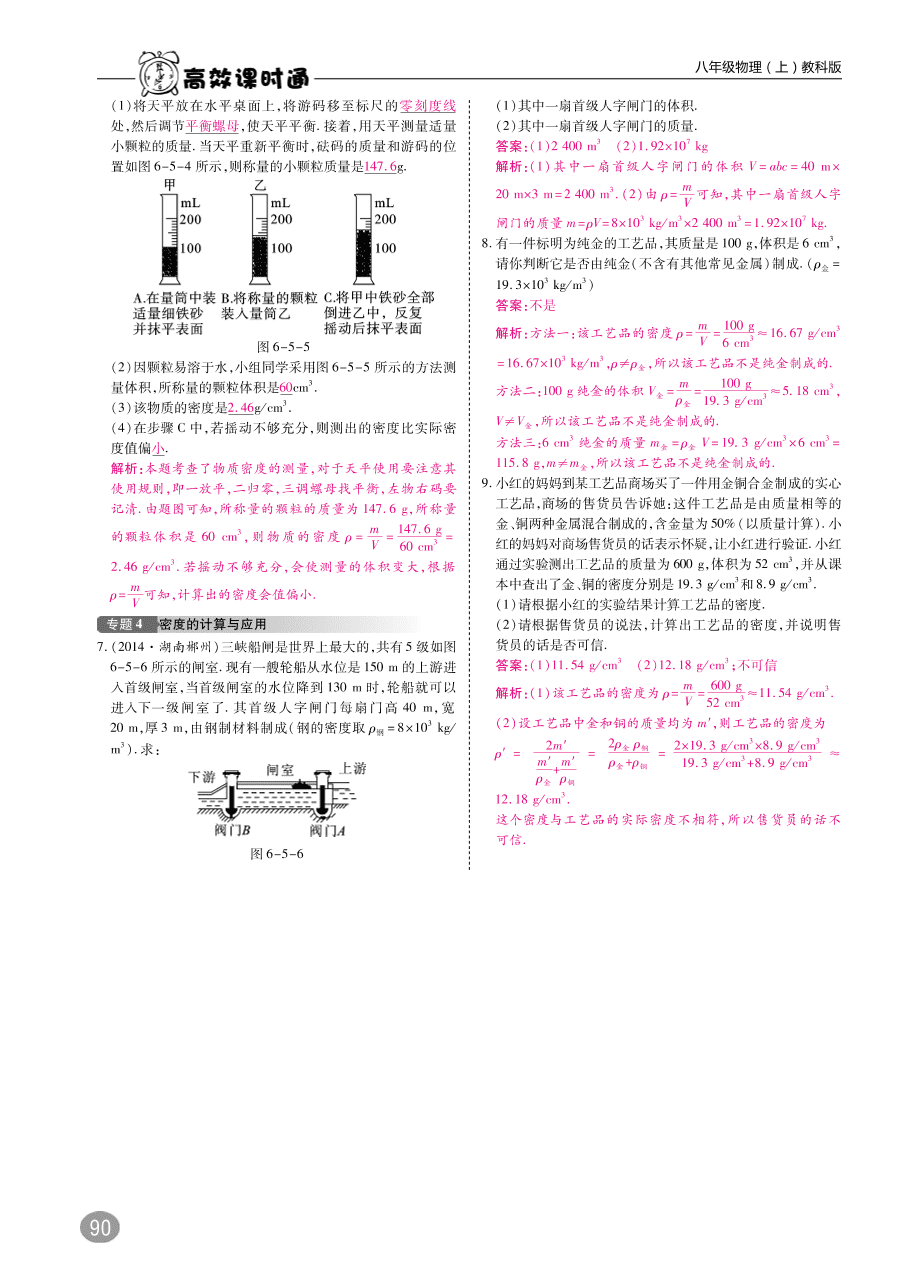 高效课时通
八年级物理(上)教科版
(1)将天平放在水平桌面上,将游码移至标尺的零刻度线
处,然后调节平衡螺母,使天平平衡. 接着,用天平测量适量
小颗粒的质量. 当天平重新平衡时,砝码的质量和游码的位
置如图 6-5-4 所示,则称量的小颗粒质量是147. 6g.
甲 乙
mL mL mL
200 200 200
100 100 100
A.在量筒中装 B.将称量的颗粒 C.将甲中铁砂全部
适量细铁砂 装入量筒乙 倒进乙中，反复
并抹平表面 摇动后抹平表面
图 6-5-5
(2)因颗粒易溶于水,小组同学采用图 6-5-5 所示的方法测
量体积,所称量的颗粒体积是60cm³.
(3)该物质的密度是2. 46g/cm³.
(4)在步骤 C 中,若摇动不够充分,则测出的密度比实际密
度值偏小.
解析:本题考查了物质密度的测量,对于天平使用要注意其
使用规则,即一放平,二归零,三调螺母找平衡,左物右码要
记清. 由题图可知,所称量的颗粒的质量为 147. 6 g,所称量
的颗粒体积是 60 cm³,则物质的密度 ρ = m/V = 147. 6 g/60 cm³ =
2. 46 g/cm³. 若摇动不够充分,会使测量的体积变大,根据
ρ= m/V 可知,计算出的密度会值偏小.
专题 4 密度的计算与应用
7. (2014·湖南郴州)三峡船闸是世界上最大的,共有 5 级如图
6-5-6 所示的闸室. 现有一艘轮船从水位是 150 m 的上游进
入首级闸室,当首级闸室的水位降到 130 m 时,轮船就可以
进入下一级闸室了. 其首级人字闸门每扇门高 40 m,宽
20 m,厚 3 m,由钢制材料制成(钢的密度取 ρ钢 = 8×10³ kg/
m³). 求:
下游 闸室 上游
阀门B 阀门A
图 6-5-6
(1)其中一扇首级人字闸门的体积.
(2)其中一扇首级人字闸门的质量.
答案:(1)2 400 m³ (2)1. 92×10⁷ kg
解析:(1)其中一扇首级人字闸门的体积 V = abc = 40 m×
20 m×3 m = 2 400 m³. (2)由 ρ= m/V 可知,其中一扇首级人字
闸门的质量 m=ρV=8×10³ kg/m³×2 400 m³ = 1. 92×10⁷ kg.
8. 有一件标明为纯金的工艺品,其质量是 100 g,体积是 6 cm³,
请你判断它是否由纯金(不含有其他常见金属)制成. (ρ金 =
19. 3×10³ kg/m³)
答案:不是
解析:方法一:该工艺品的密度 ρ= m/V = 100 g/6 cm³ ≈16. 67 g/cm³
= 16. 67×10³ kg/m³,ρ≠ρ金,所以该工艺品不是纯金制成的.
方法二:100 g 纯金的体积 V金 = m/ρ金 = 100 g/19. 3 g/cm³ ≈5. 18 cm³,
V≠V金,所以该工艺品不是纯金制成的.
方法三:6 cm³ 纯金的质量 m金 = ρ金 V = 19. 3 g/cm³ ×6 cm³ =
115. 8 g,m≠m金,所以该工艺品不是纯金制成的.
9. 小红的妈妈到某工艺品商场买了一件用金铜合金制成的实心
工艺品,商场的售货员告诉她:这件工艺品是由质量相等的
金、铜两种金属混合制成的,含金量为 50%(以质量计算). 小
红的妈妈对商场售货员的话表示怀疑,让小红进行验证. 小红
通过实验测出工艺品的质量为 600 g,体积为 52 cm³,并从课
本中查出了金、铜的密度分别是 19. 3 g/cm³和 8. 9 g/cm³.
(1)请根据小红的实验结果计算工艺品的密度.
(2)请根据售货员的说法,计算出工艺品的密度,并说明售
货员的话是否可信.
答案:(1)11. 54 g/cm³ (2)12. 18 g/cm³;不可信
解析:(1)该工艺品的密度为 ρ= m/V = 600 g/52 cm³ ≈11. 54 g/cm³.
(2)设工艺品中金和铜的质量均为 m′,则工艺品的密度为
ρ′ = 2m′/(m′/ρ金 + m′/ρ铜) = 2ρ金 ρ铜/(ρ金+ρ铜) = 2×19. 3 g/cm³×8. 9 g/cm³/(19. 3 g/cm³+8. 9 g/cm³) ≈
12. 18 g/cm³.
这个密度与工艺品的实际密度不相符,所以售货员的话不
可信.
90